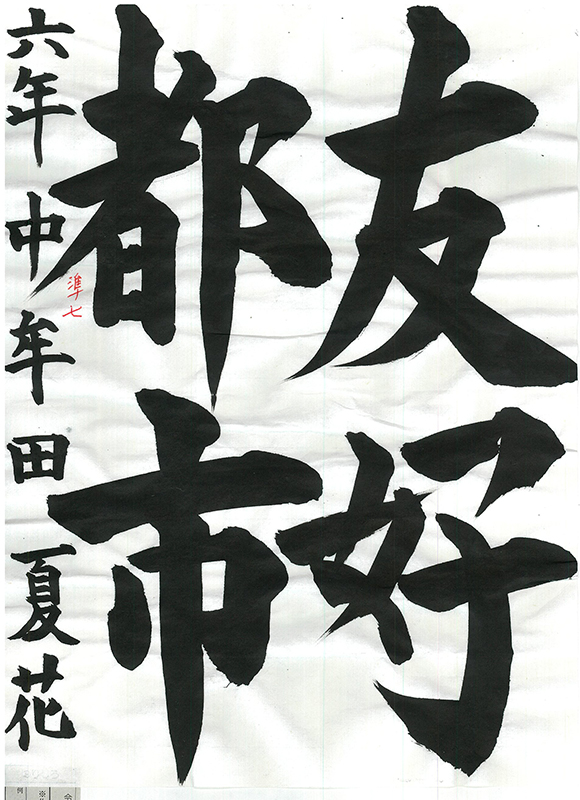 友好
都市
六年 中牟田 夏花
準七